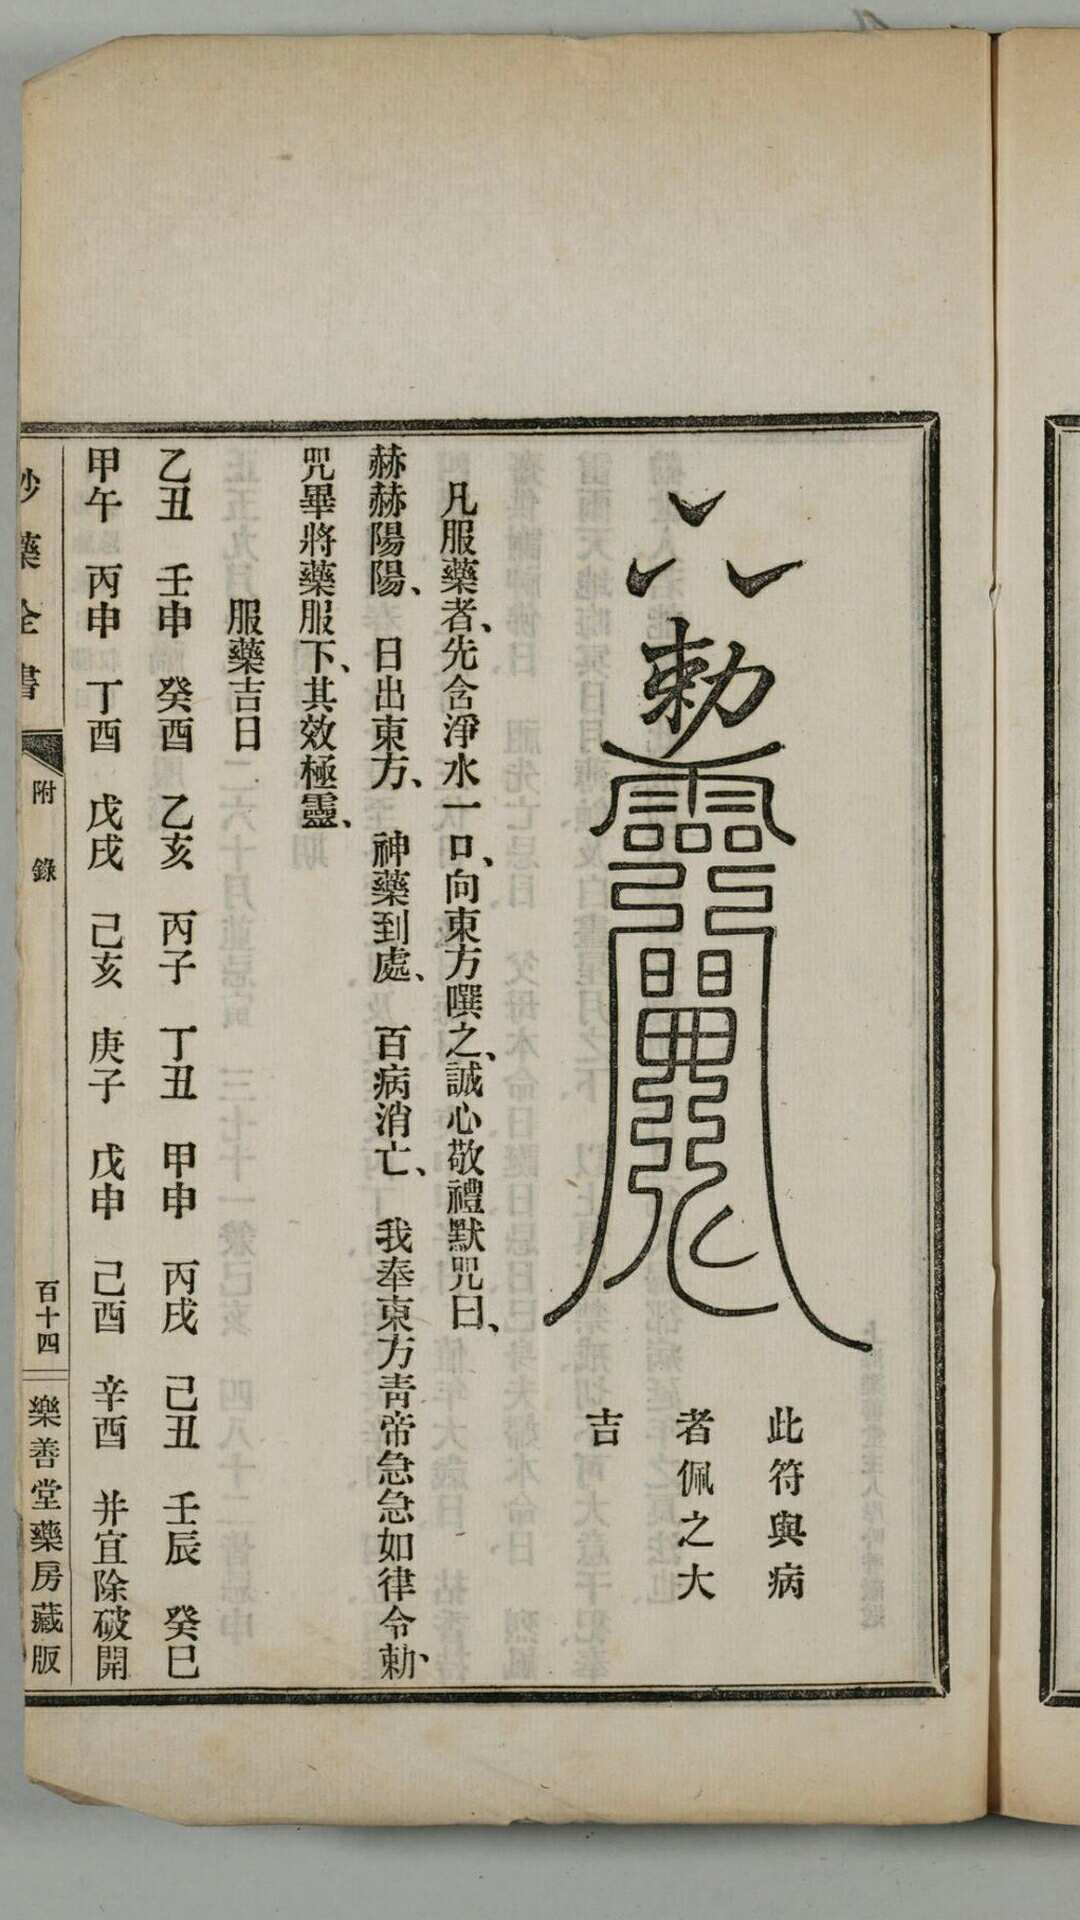 勅
此符與病
者佩之大
吉
凡服藥者、先含淨水一口、向東方噀之、誠心敬禮默咒曰、
赫赫陽陽、日出東方、神藥到處、百病消亡、我奉東方靑帝急急如律令勅、
咒畢將藥服下、其效極靈、
服藥吉日
乙丑 壬申 癸酉 乙亥 丙子 丁丑 甲申 丙戌 己丑 壬辰 癸巳
甲午 丙申 丁酉 戊戌 己亥 庚子 戊申 己酉 辛酉 并宜除破開
妙藥全書 附錄 百十四 樂善堂藥房藏版